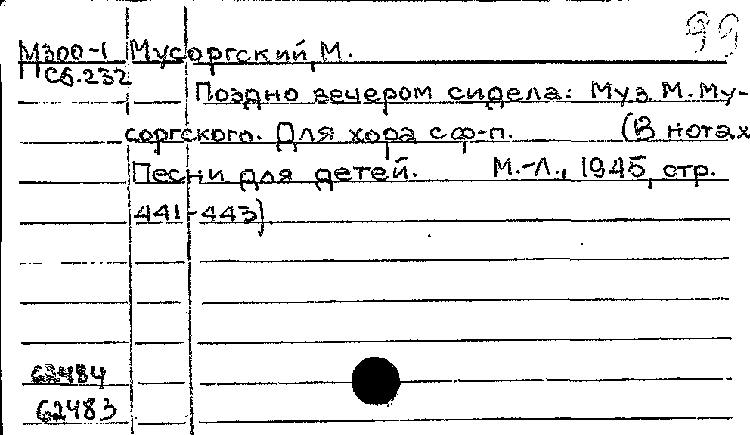 99
М300-1 Мусоргский, М.
Сб.232
Поздно вечером сидела: Муз. М. Му-
соргского. Для хора с ф-п. (В нотах
Песни для детей. М.-Л., 1945, стр.
441-443)
62484
62483